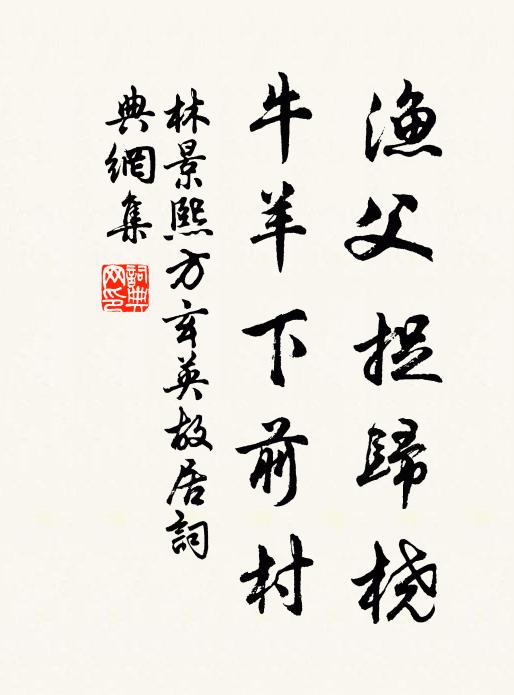 漁父捉歸橈
牛羊下前村
林景熙方玄英故居詞
典網集
詞典网印